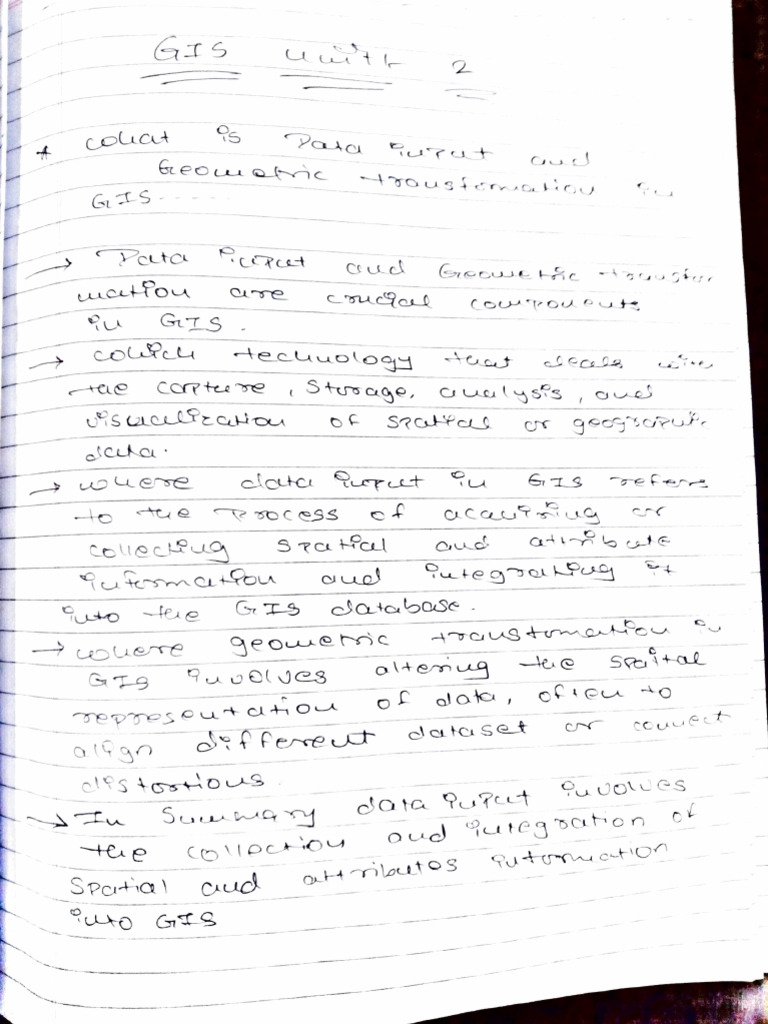 GIS unit 2
* What is Data input and
Geometric transformation in
GIS -----
→ Data input and Geometric transfor
mation are crucial components
in GIS.
→ which technology that deals with
the capture, storage, analysis, and
visualization of spatial or geographic
data.
→ where data input in GIS refers
to the process of acquiring or
collecting spatial and attribute
information and integrating it
into the GIS database.
→ where geometric transformation in
GIS involves altering the spaital
representation of data, often to
align different dataset or correct
distortions.
→ In Summary data input involves
the collection and integration of
Spatial and attributes information
into GIS